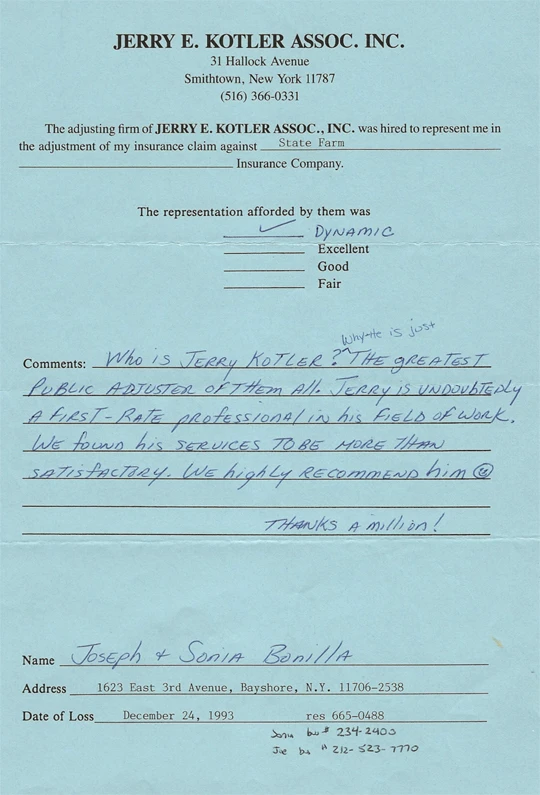 JERRY E. KOTLER ASSOC. INC.
31 Hallock Avenue
Smithtown, New York 11787
(516) 366-0331
The adjusting firm of JERRY E. KOTLER ASSOC., INC. was hired to represent me in
the adjustment of my insurance claim against State Farm
Insurance Company.
The representation afforded by them was
✓ DYNAMIC
Excellent
Good
Fair
Why-He is just
Comments: Who is JERRY KOTLER? THE gREATEST
PUBLIC ADJUSTER OF THEM ALL. JERRY is UNDOUBTEDLY
A FIRST-RATE PROFESSIONAL in his FIELD OF WORK.
WE found his SERVICES TO BE MORE THAN
SATISFACTORY. WE highly RECOMMEND him ☺
THANKS A million!
Name Joseph + Sonia Bonilla
Address 1623 East 3rd Avenue, Bayshore, N.Y. 11706-2538
Date of Loss December 24, 1993 res 665-0488
Sonia bus # 234-2400
Joe bus # 212-523-7770